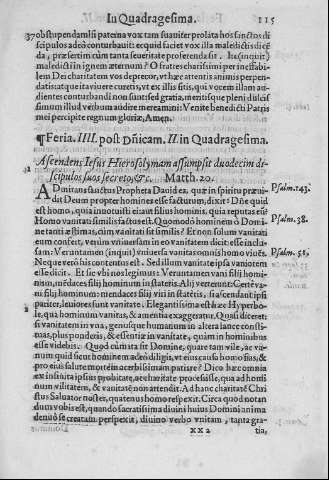 In Quadragesima. 115
obstupendam si pateina vox tam suauiter prolata hos sanctos di
scipulos adeò conturbauit: ecquid faciet vox illa maledictis dicen
da, præsertim cùm tanta seueritate proferenda sit. Ite (inquit)
maledicti in ignem æternum? O fratres charissimi per ineffabi
lem Dei charitatem vos deprecor, vt hæc attentis animis perpen-
datis: atque ita viuere curetis, vt ex illis sitis, qui vocem illam au-
dientes conturbandi non sunt: sed gratia, meritisque pleni dulcis
simum illud verbum audire mereamini: Venite benedicti Patris
mei percipite regnum gloriæ, Amen.
¶Feria. IIII. post Dñicam. II. in Quadragesima.
Ascendens Iesus Hierosolymam assumpsit duodecim di-
scipulos suos secretò, &c. Matth. 20.
ADmirans sanctus Propheta Dauid ea, quæ in spiritu præui-
dit Deum propter homines esse facturum, dixit: Dñe quid
est homo, quia innotuisti ei: aut filius hominis, quia reputas eum?
Homo vanitati similis factus est. Quomodo hominem ô Domi-
ne tanti æstimas, cùm vanitati sit similis? Et non solum vanitati
eum confert, verùm vniuersam in eo vanitatem dicit esse inclu-
sam: Veruntamen (inquit) vniuersa vanitas omnis homo viuēs.
Neque verò his contentus est. Sed illum vanitate ipsa vaniorem
esse dicit. Et sic vbi nos legimus: Veruntamen vani filij homi-
num, mēdaces filij hominum in stateris. Alij verterunt: Certè va-
ni filij hominum: mendaces filij viri in stateris, si ascendant ipsi
pariter, leuiores sunt vanitate. Elegantissima est hæc Hyperbo-
le, qua hominum vanitas, & amentia exaggeratur. Quasi diceret:
si vanitatem in vna, genusque humanum in altera lance consti-
mas, plus ponderis, & essentiæ in vanitate, quàm in hominibus
esse videbis. Quod cùm ita sit Domine, quare tam vile, ac va-
num quid sicut hominem adeò diligis, vt eius causa homo fias, &
pro eius salute mortem acerbissimam patiare? Dico hæc omnia
ex infinita ipsius probitate, ac charitate processisse, qua ad homi
num vilitatem, & vanitatē non attendit. Ad hanc charitatē Chri
stus Saluator noster, quatenus homo respexit. Circa quod notan
dum vobis est, quando sacratissima diuini huius Domini anima
denuò se creatam perspexit, diuino verbo vnitam, tanta gra-
XX 2 tia,
37
2
Psalm. 143.
Psalm. 38.
Psalm. 51.